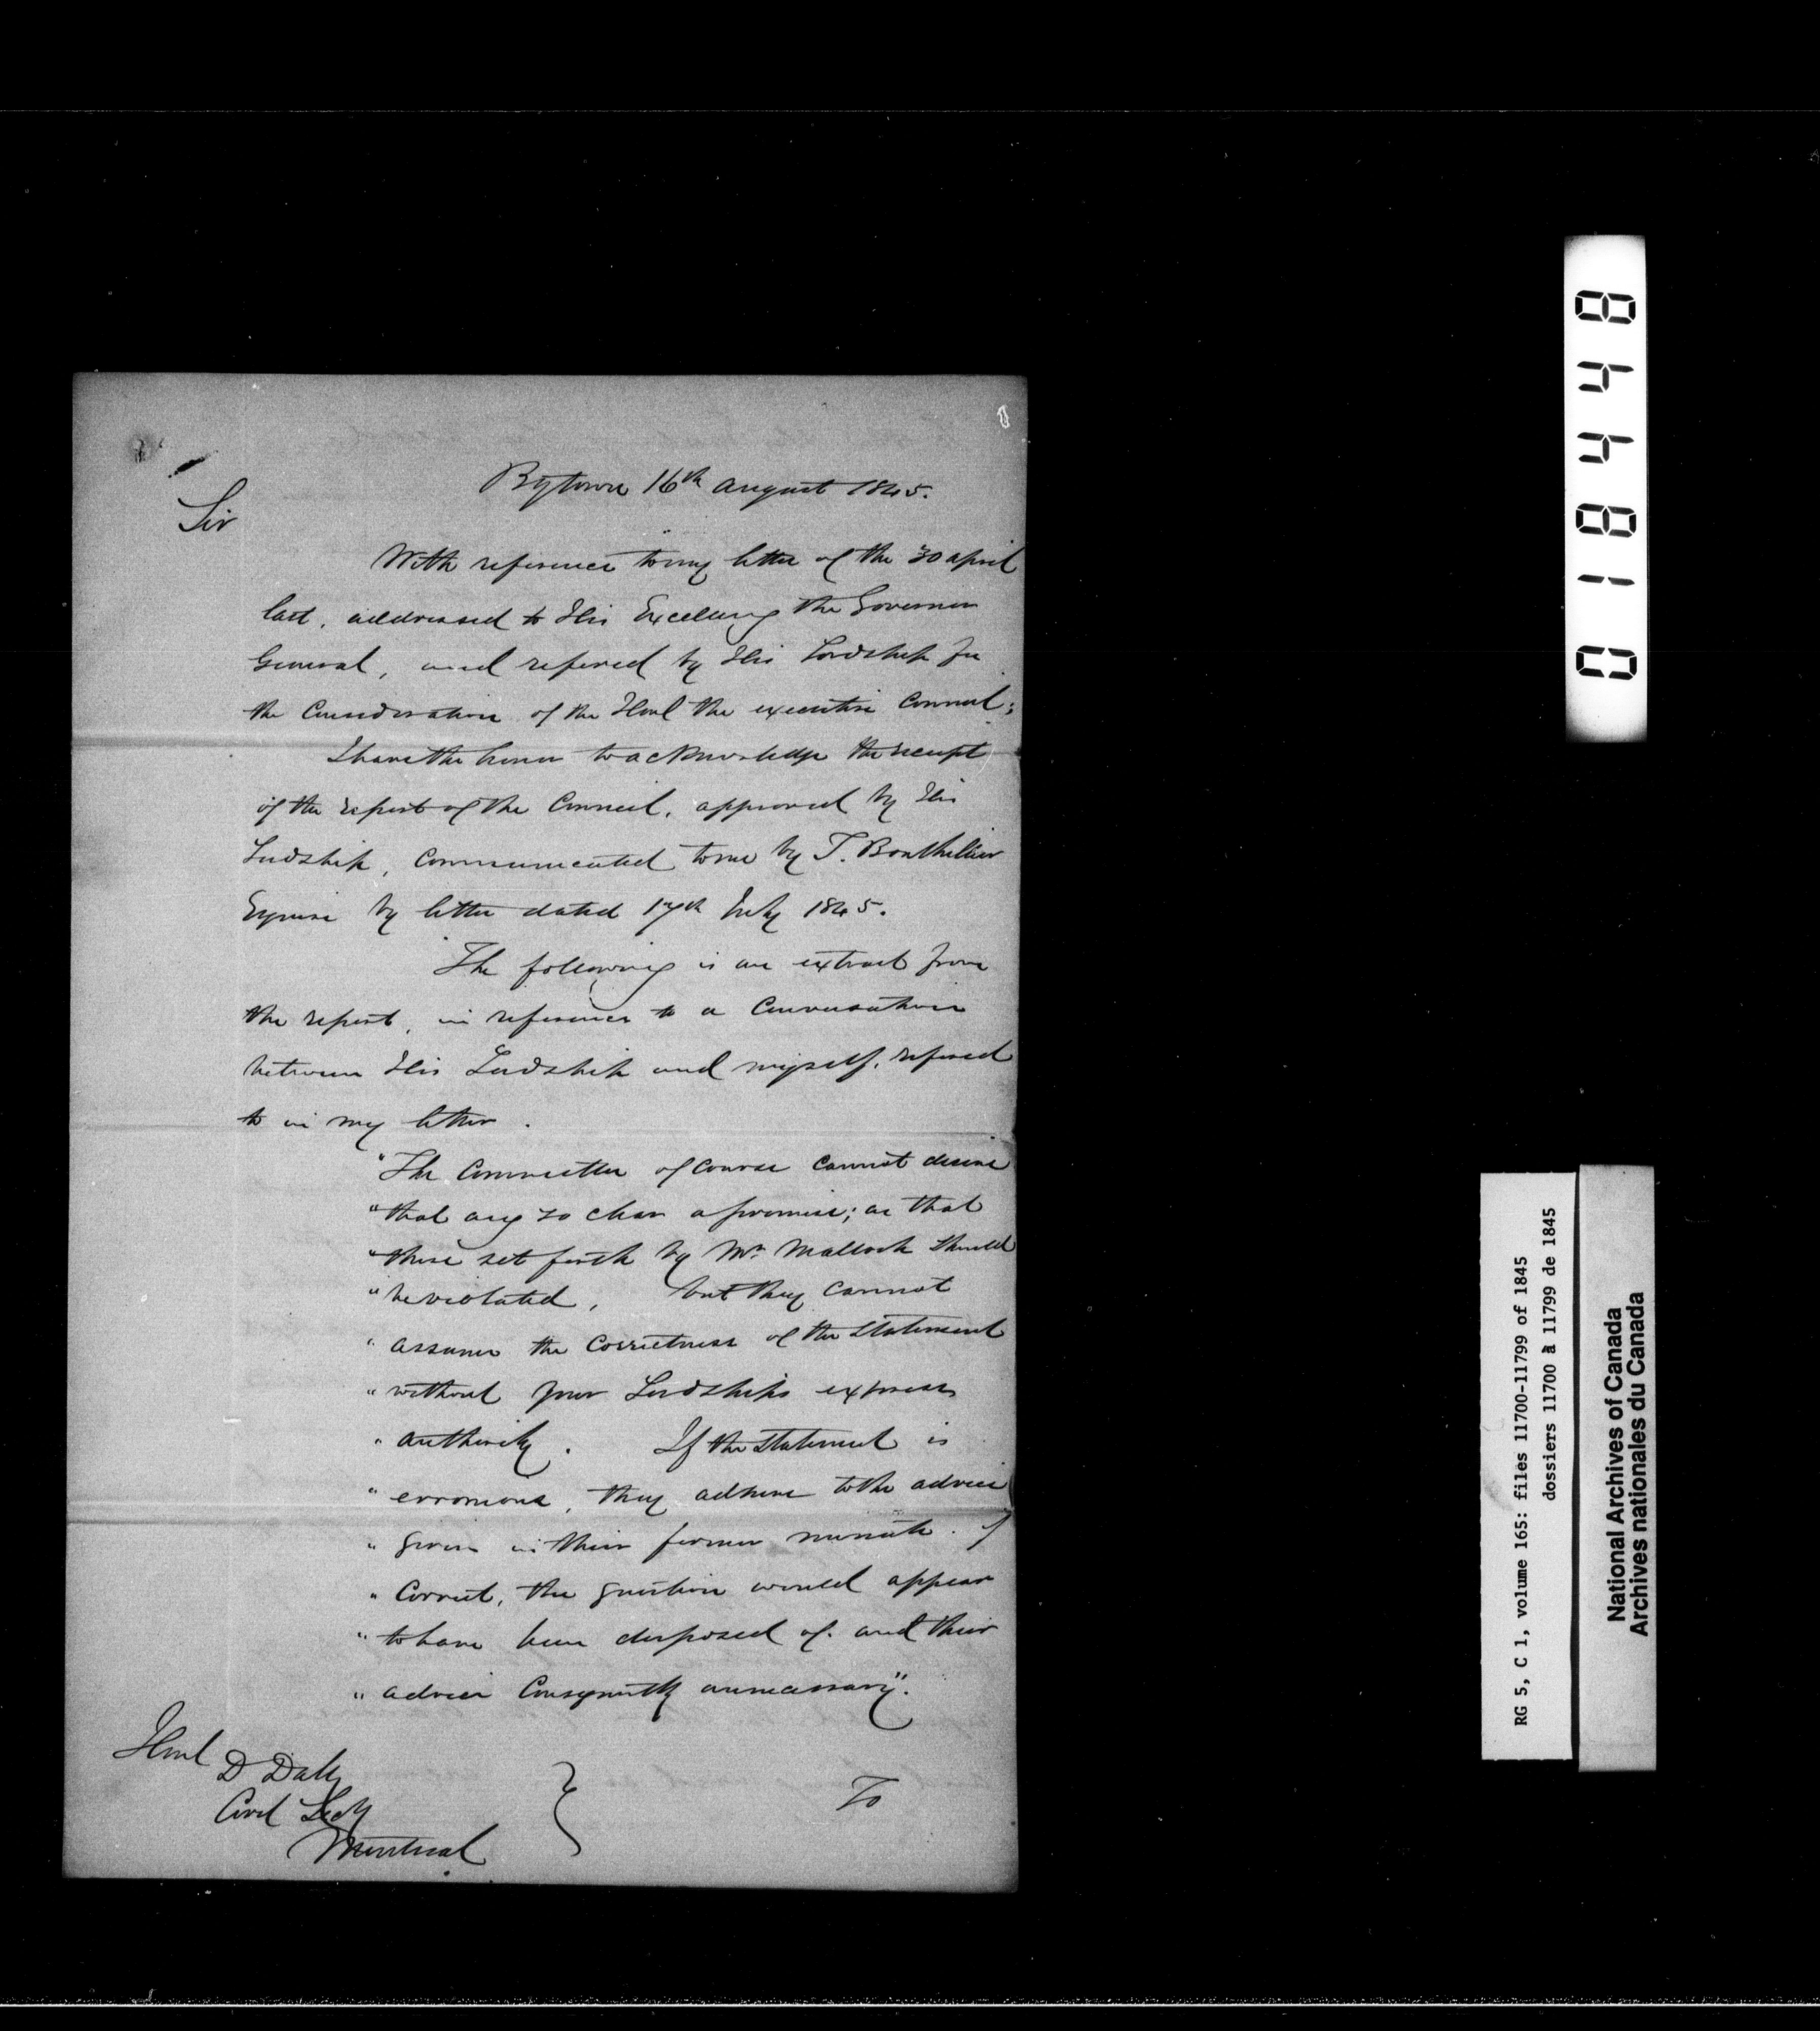 Bytown 16th august 1845.
Sir
With reference to my letter of the 30 april
last, addressed to His Excellency the Governor
General, and refered by His Lordship for
the Consideration of the Honl the executive Council;
I have the honor to acknowledge the receipt
of the report of the Council, approved by His
Lordship, Communicated to me by T. Bouthillier
Esquire by letter dated 17th July 1845.
The following is an extract from
the report, in reference to a Conversation
between His Lordship and myself, refered
to in my letter.
"The Committee of Course Cannot desire
"that any so clear a promise; as that
"there set forth by Mr. Malloch should
"be violated, but they Cannot
"assume the Correctness of the Statement
"without your Lordships express
"authority. If the Statement is
"erroneous, they adhere to the advice
"given in their former minute. If
"Correct, the question would appear
"to have been disposed of. and their
"advice Consequently unnecessary".
Honl
D Daly
Civil Secy
Montreal
To
0 1 8 4 4 8
RG 5, C 1, volume 165: files 11700-11799 of 1845
dossiers 11700 à 11799 de 1845
National Archives of Canada
Archives nationales du Canada